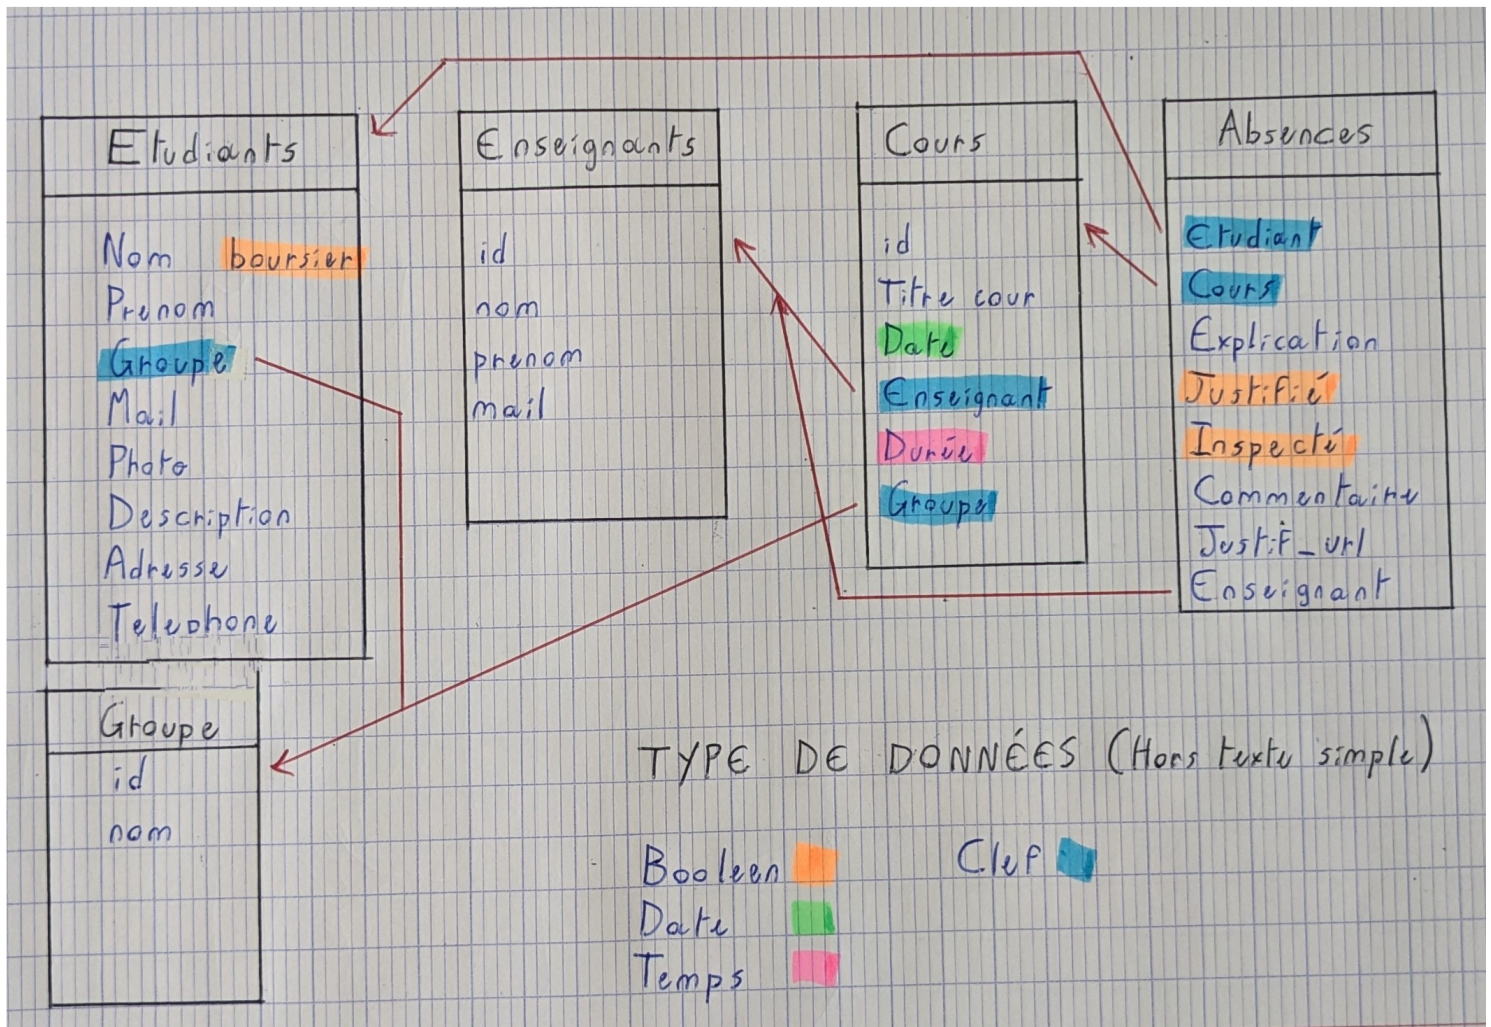 Etudiants
Nom boursier
Prenom
Groupe
Mail
Photo
Description
Adresse
Telephone
Enseignants
id
nom
prenom
mail
Cours
id
Titre cour
Date
Enseignant
Durée
Groupe
Absences
Etudiant
Cours
Explication
Justifié
Inspecté
Commentaire
Justif_url
Enseignant
Groupe
id
nom
TYPE DE DONNÉES (Hors texte simple)
Booleen
Clef
Date
Temps